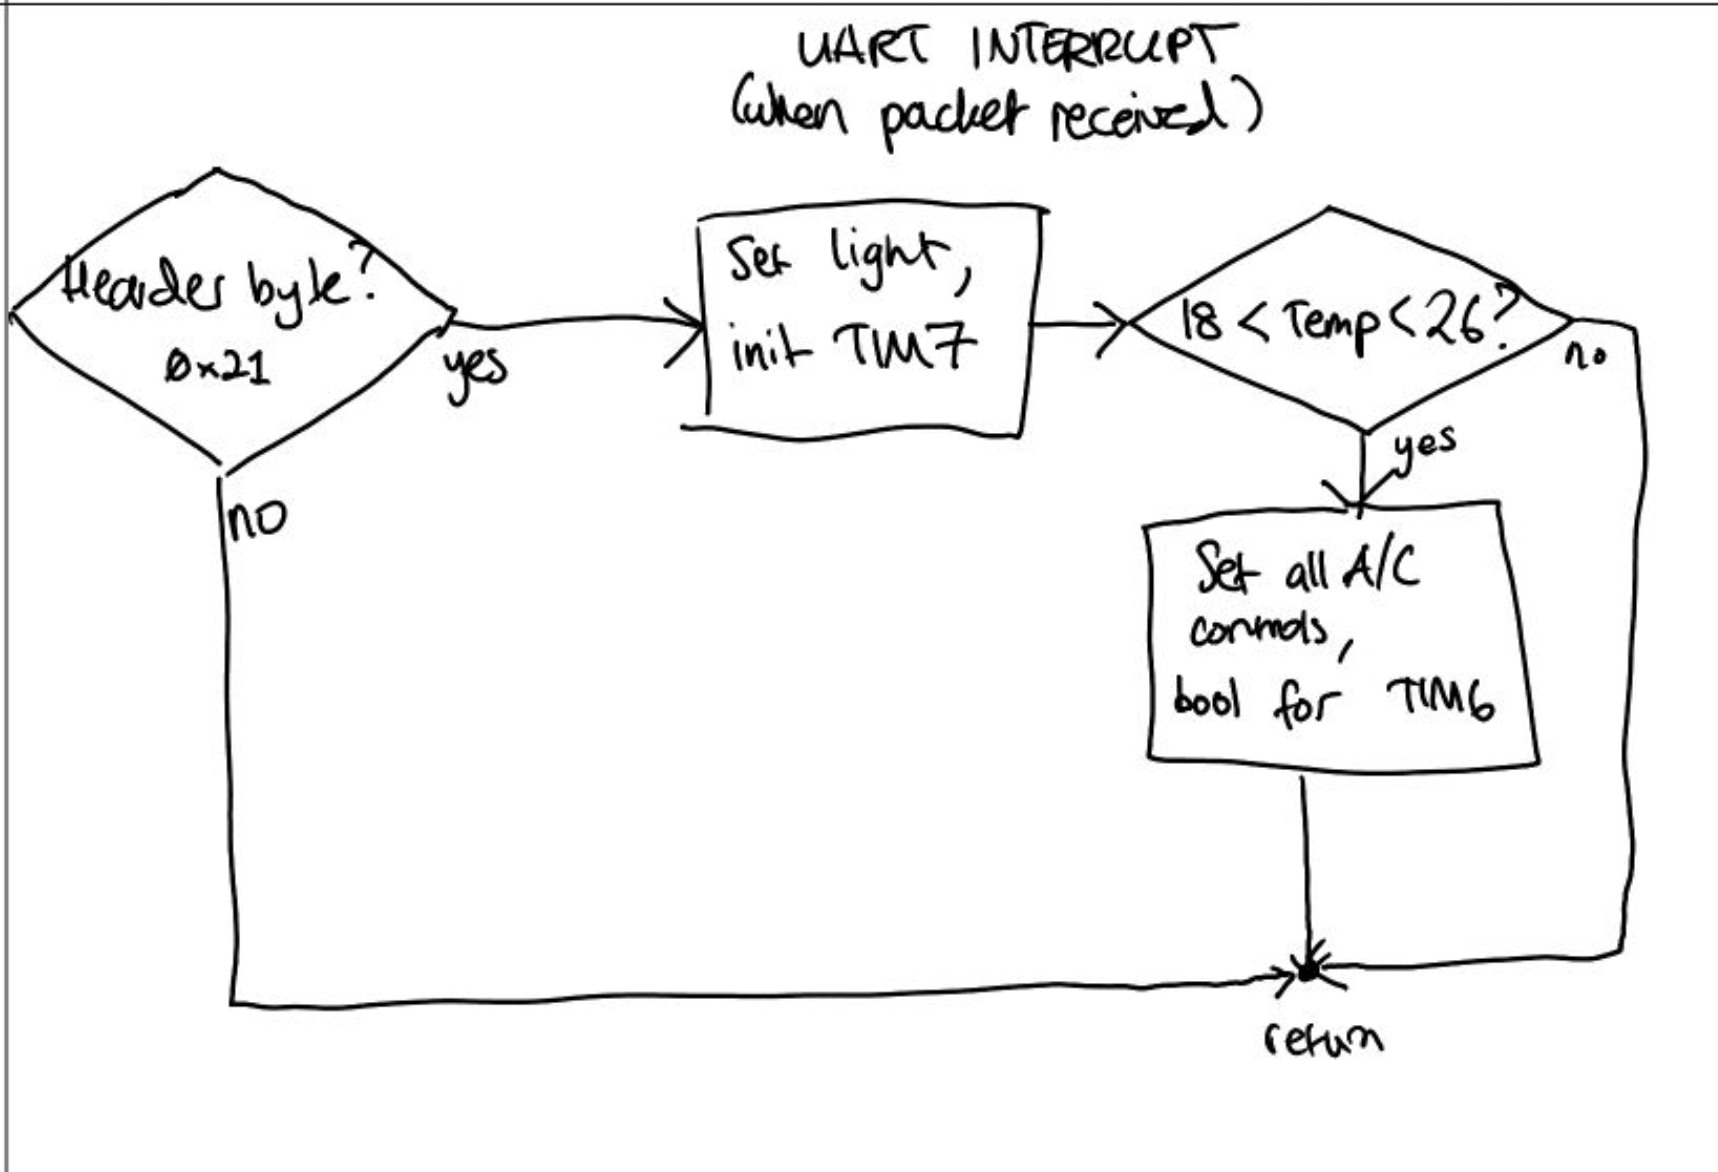 UART INTERRUPT
(when packet received)
Header byte?
0x21
yes
no
Set light,
init TIM7
18 < Temp < 26?
no
yes
Set all A/C
controls,
bool for TIM6
return